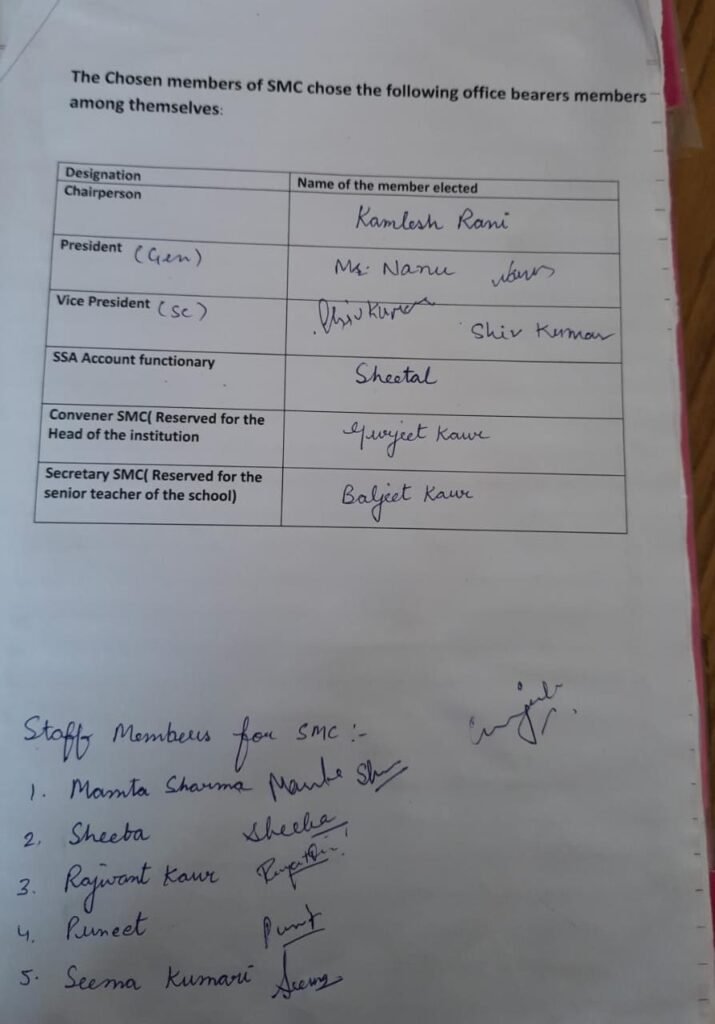 The Chosen members of SMC chose the following office bearers members
among themselves:
Designation Name of the member elected
Chairperson Kamlesh Rani
President (Gen) Ms. Nanu
Vice President (SC) Shiv Kumar Shiv Kumar
SSA Account functionary Sheetal
Convener SMC( Reserved for the
Head of the institution Gurjeet Kaur
Secretary SMC( Reserved for the
senior teacher of the school) Baljeet Kaur
Staff Members for SMC :-
1. Mamta Sharma
2. Sheeba Sheeba
3. Rajwant Kaur
4. Puneet
5. Seema Kumari Seema